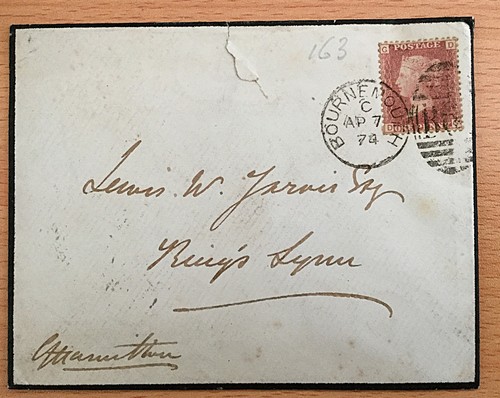 163
G D
POSTAGE
D G
BOURNEMOUTH
C
AP 7
74
Lewis W. Jarvis Esq
King's Lynn